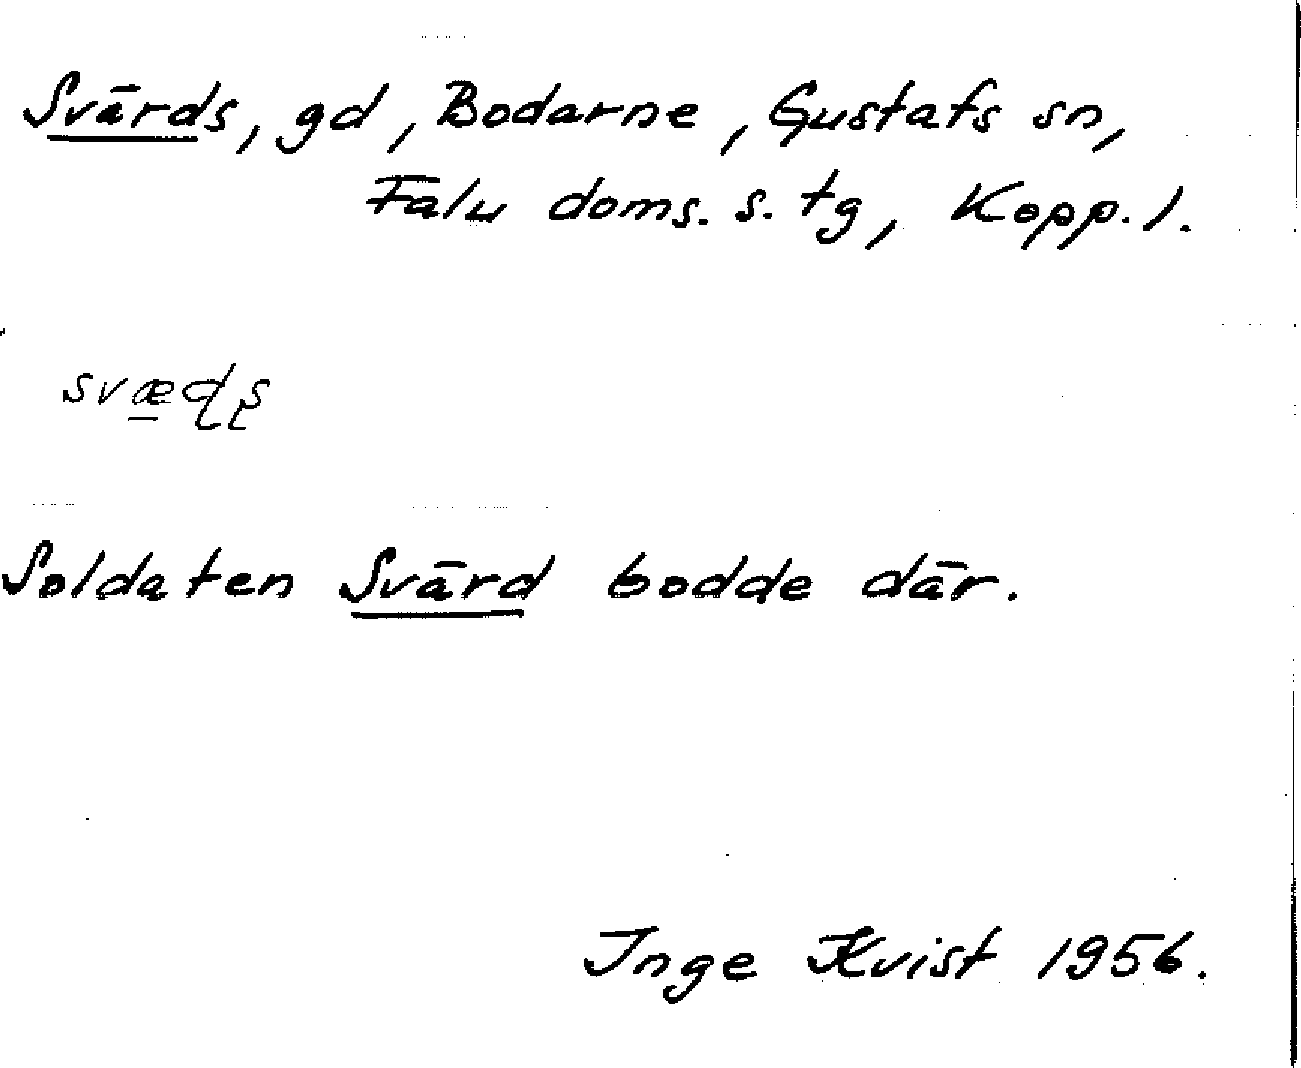 Svärds, gd, Bodarne, Gustafs sn,
Falu doms. s. tg, Kopp. l.
svæɖʂ
Soldaten Svärd bodde där.
Inge Kvist 1956.